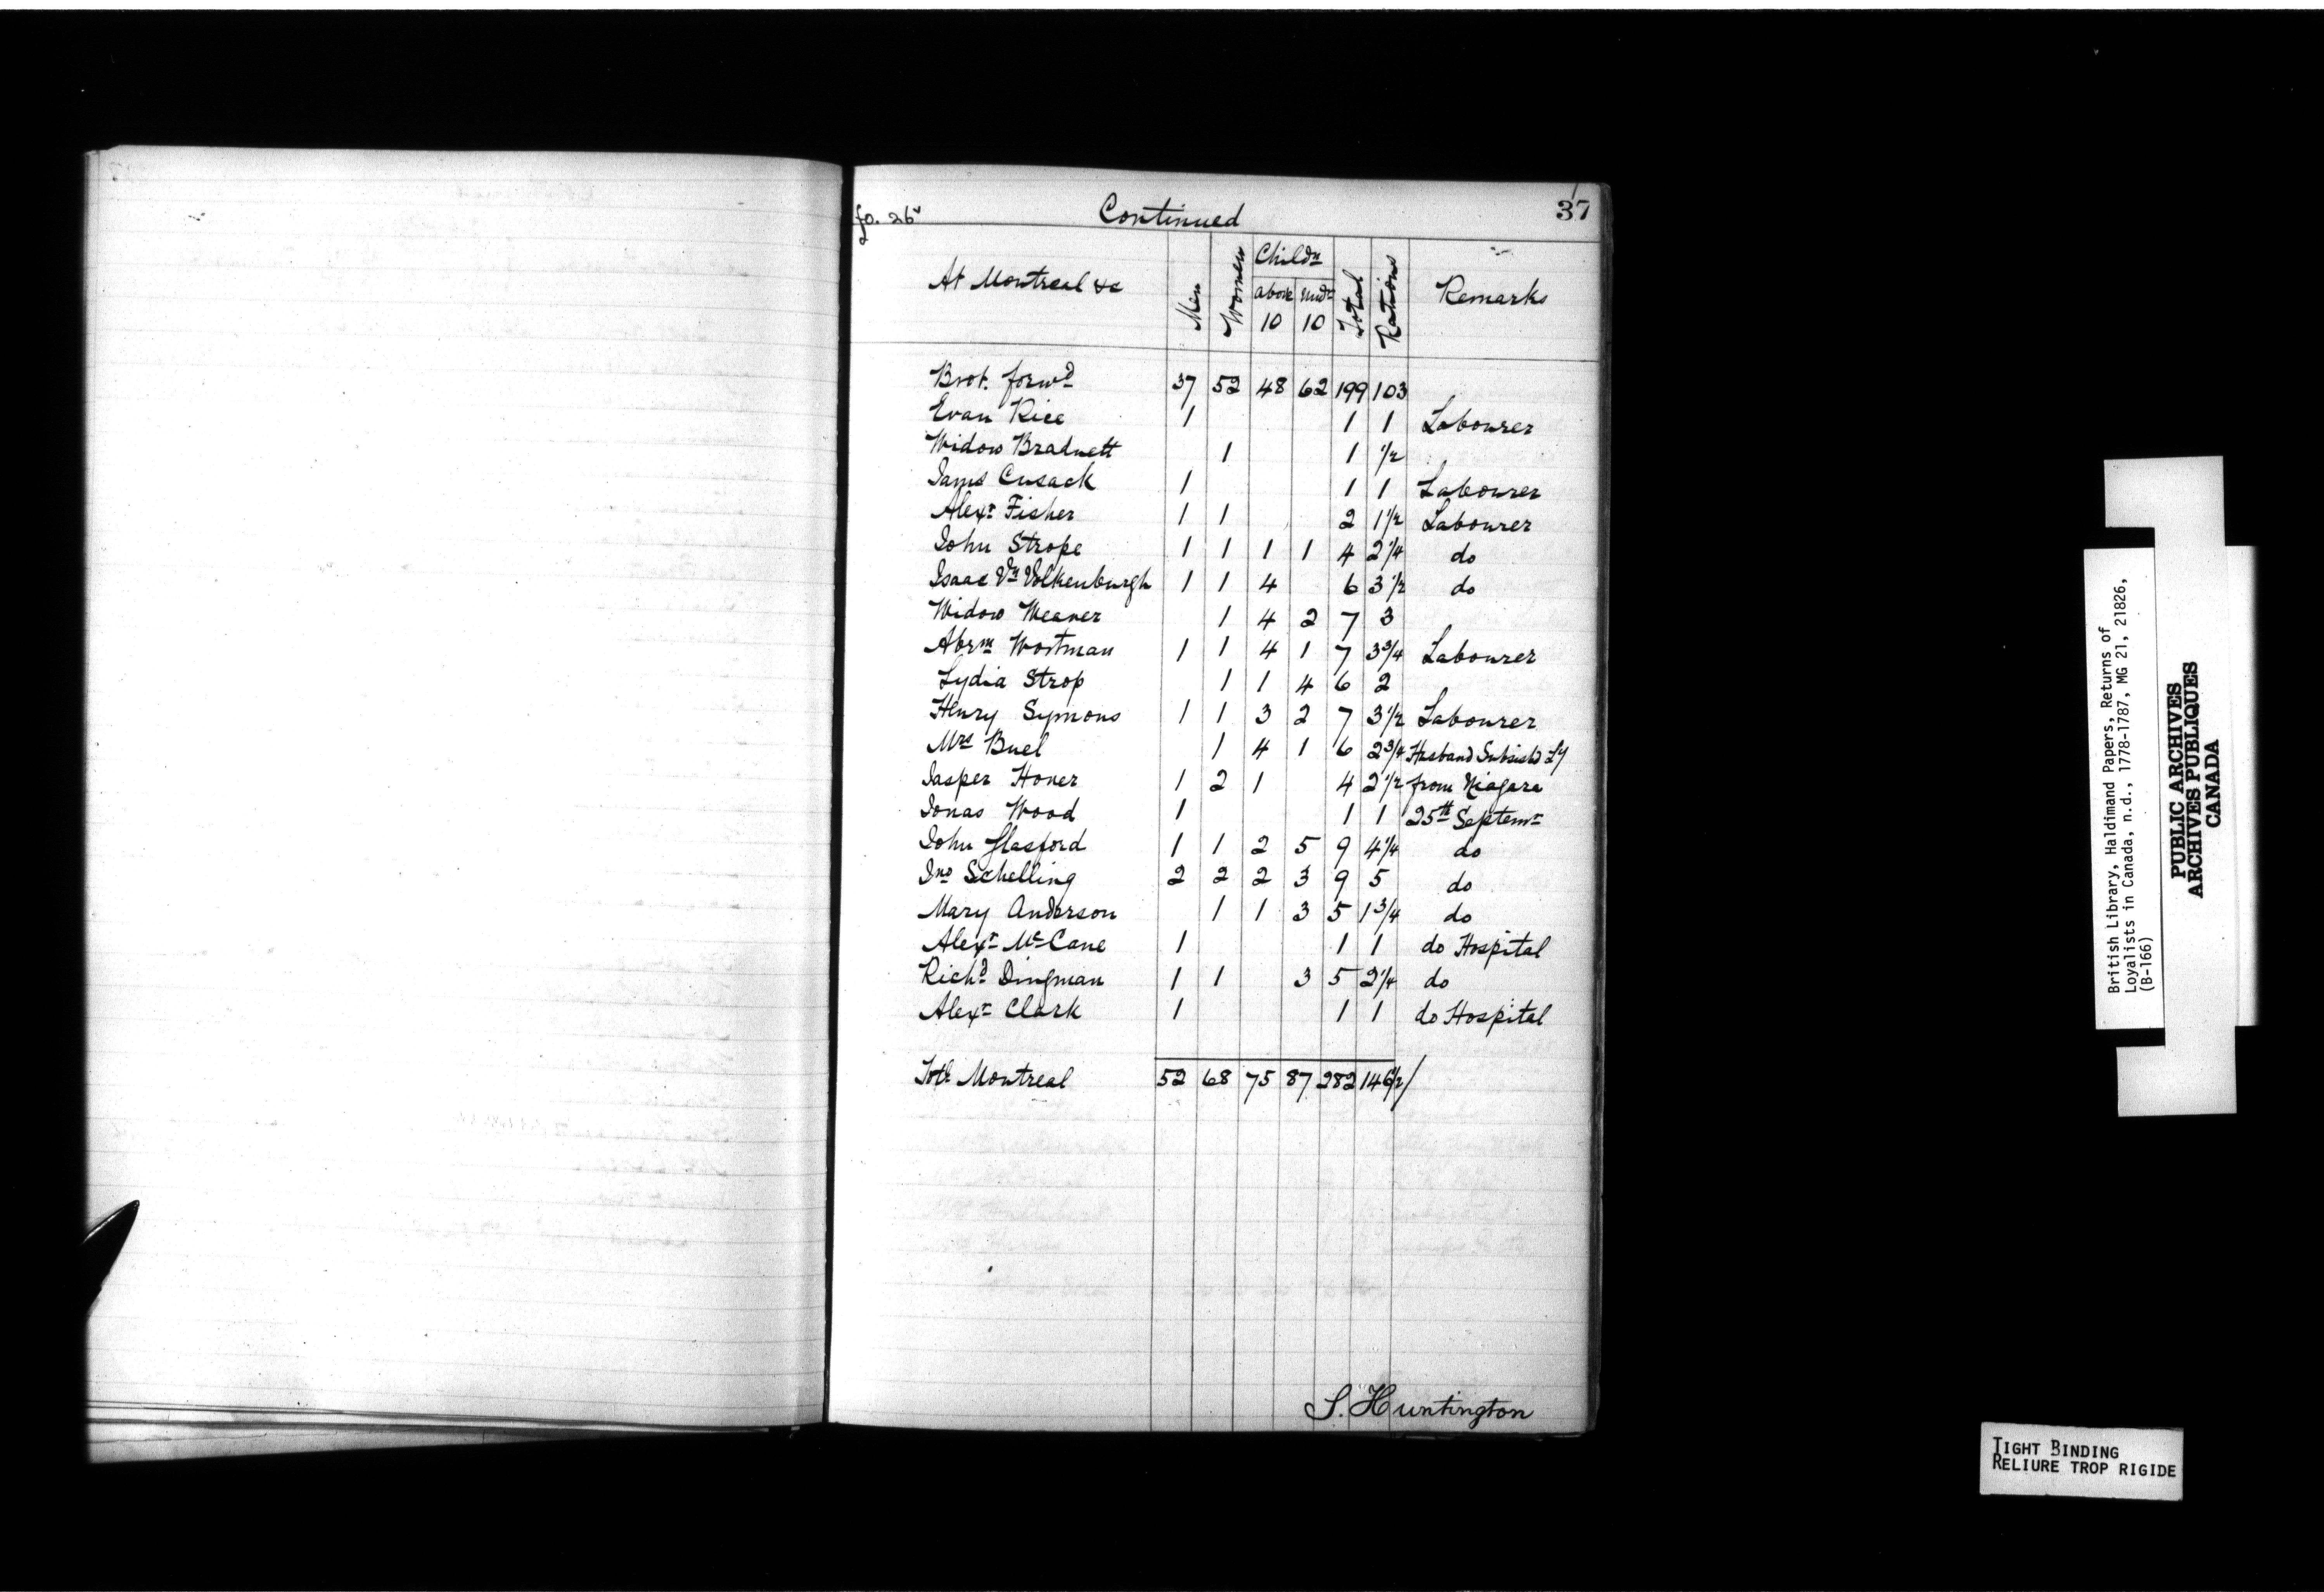 fo. 26v Continued 37
At Montreal &c Men Women Childn above 10 undr 10 Total Rations Remarks
Brot. forwd 37 52 48 62 199 103
Evan Rice 1 1 1 Labourer
Widow Bradnett 1 1 1/2
James Cusack 1 1 1 Labourer
Alexr Fisher 1 1 2 1 1/2 Labourer
John Strope 1 1 1 1 4 2 1/4 do
Isaac Vn Volkenburgh 1 1 4 6 3 1/2 do
Widow Weaver 1 4 2 7 3
Abrm Wostman 1 1 4 1 7 3 3/4 Labourer
Lydia Strop 1 1 4 6 2
Henry Symons 1 1 3 2 7 3 1/2 Labourer
Mrs Buel 1 4 1 6 2 3/4 Husband Subsistd
Jasper Hover 1 2 1 4 2 1/2 from Niagara
Jonas Wood 1 1 1 25th Septemr
John Glasford 1 1 2 5 9 4 1/4 do
Jno Schelling 2 2 2 3 9 5 do
Mary Anderson 1 1 3 5 1 3/4 do
Alexr McCane 1 1 1 do Hospital
Richd Dingman 1 1 3 5 2 1/4 do
Alexr Clark 1 1 1 do Hospital
Totl Montreal 52 68 75 87 282 146 1/2/
S. Huntington
British Library, Haldimand Papers, Returns of
Loyalists in Canada, n.d., 1778-1787, MG 21, 21826,
(B-166)
PUBLIC ARCHIVES
ARCHIVES PUBLIQUES
CANADA
TIGHT BINDING
RELIURE TROP RIGIDE